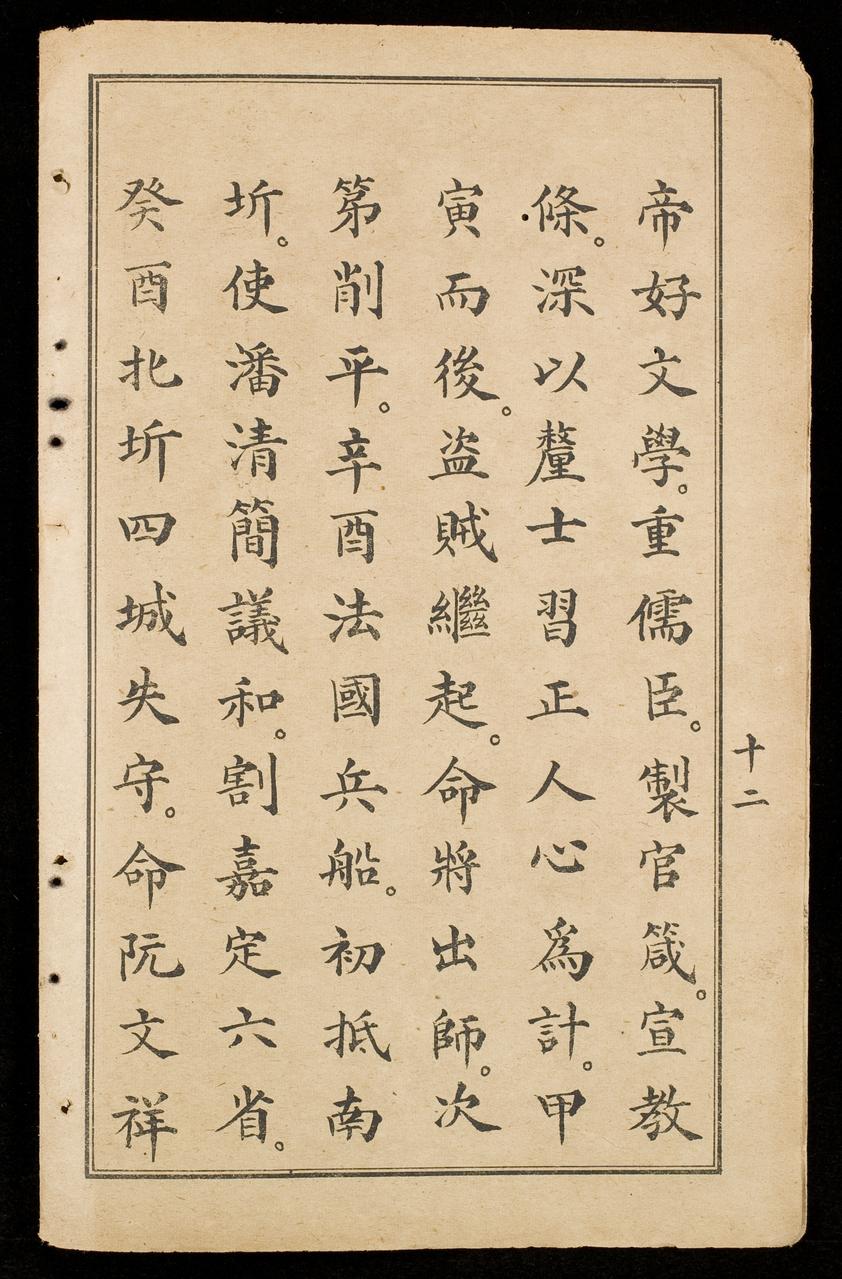 帝好文學。重儒臣。製官箴。宣教
條。深以釐士習正人心爲計。甲
寅而後。盗賊繼起。命將出師。次
第削平。辛酉法國兵船。初抵南
圻。使潘清簡議和。割嘉定六省。
癸酉北圻四城失守。命阮文祥
十二